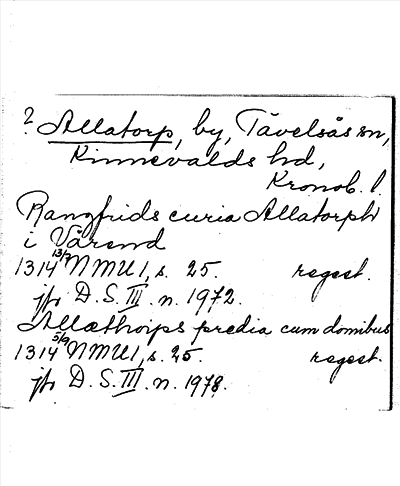 ? Allatorp, by, Tävelsås sn,
Kinnevalds hd,
Kronob. l.
Rangfrids curia Allatorph
i Värend
1314 13/7 NMU 1, s. 25. regest.
jfr D. S. III. n. 1972.
Allæthorps predia cum domibus
1314 5/9 NMU 1, s. 25. regest.
jfr D. S. III. n. 1978.